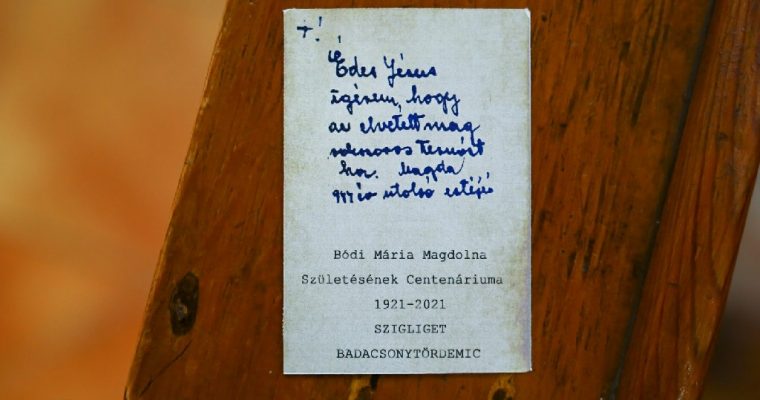 +!
Édes Jézus
igérem, hogy
az elvetett mag
sokszoros termést
hoz. Magda
944 év utolsó estéjén
Bódi Mária Magdolna
Születésének Centenáriuma
1921-2021
SZIGLIGET
BADACSONYTÖRDEMIC